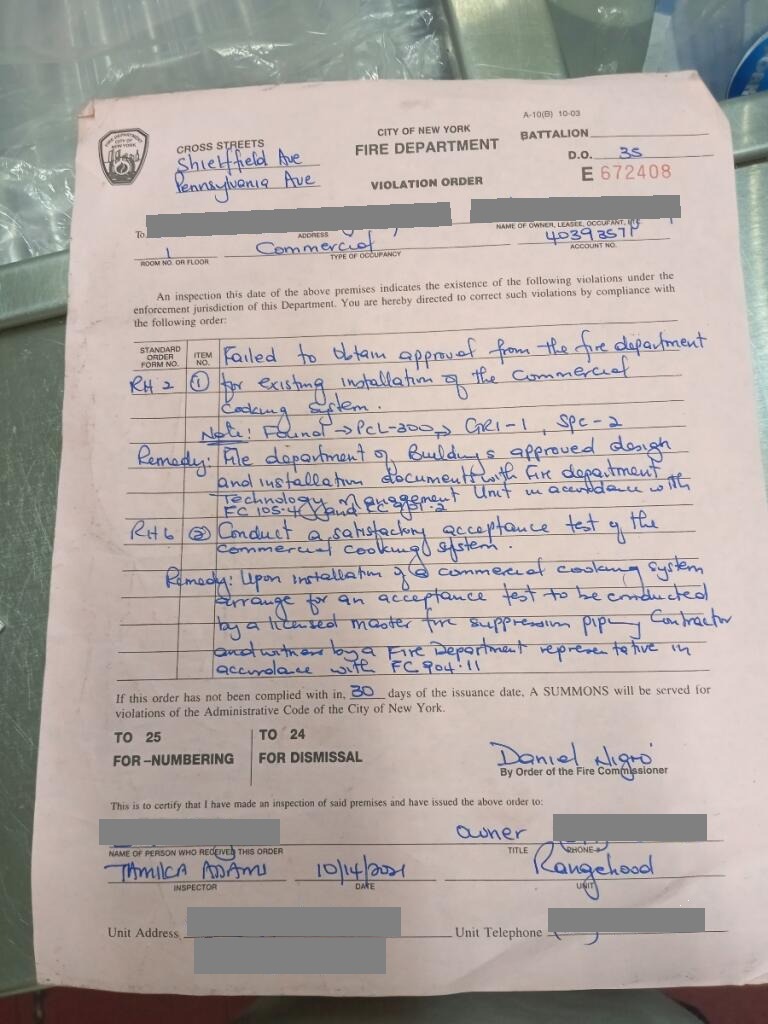 A-10(B) 10-03
CITY OF NEW YORK
FIRE DEPARTMENT
VIOLATION ORDER
FIRE DEPARTMENT
CITY OF
NEW YORK
CROSS STREETS
Shieffield Ave
Pennsylvania Ave
BATTALION
D.O. 35
E 672408
To
ADDRESS
NAME OF OWNER, LEASEE, OCCUPANT, ETC
1 Commercial 40393571
ROOM NO. OR FLOOR TYPE OF OCCUPANCY ACCOUNT NO.
An inspection this date of the above premises indicates the existence of the following violations under the
enforcement jurisdiction of this Department. You are hereby directed to correct such violations by compliance with
the following order:
STANDARD ORDER FORM NO. ITEM NO.
Failed to obtain approval from the fire department
RH2 1 for existing installation of the commercial
cooking system.
Note: Found → PCL-300, GRI-1, SPC-2
Remedy: File department of Buildings approved design
and installation documents with Fire department
Technology Management Unit in accordance with
FC 105.4 and FC
RH6 2 Conduct a satisfactory acceptance test of the
commercial cooking system.
Remedy: Upon installation of a commercial cooking system
arrange for an acceptance test to be conducted
by a licensed master fire suppression piping Contractor
and witness by a Fire Department representative in
accordance with FC 904.11
If this order has not been complied with in, 30 days of the issuance date, A SUMMONS will be served for
violations of the Administrative Code of the City of New York.
TO 25
FOR –NUMBERING
TO 24
FOR DISMISSAL
Daniel Nigro
By Order of the Fire Commissioner
This is to certify that I have made an inspection of said premises and have issued the above order to:
owner
NAME OF PERSON WHO RECEIVED THIS ORDER TITLE PHONE
TAMILCA ADDAMS 10/14/2021 Rangehood
INSPECTOR DATE UNIT
Unit Address Unit Telephone